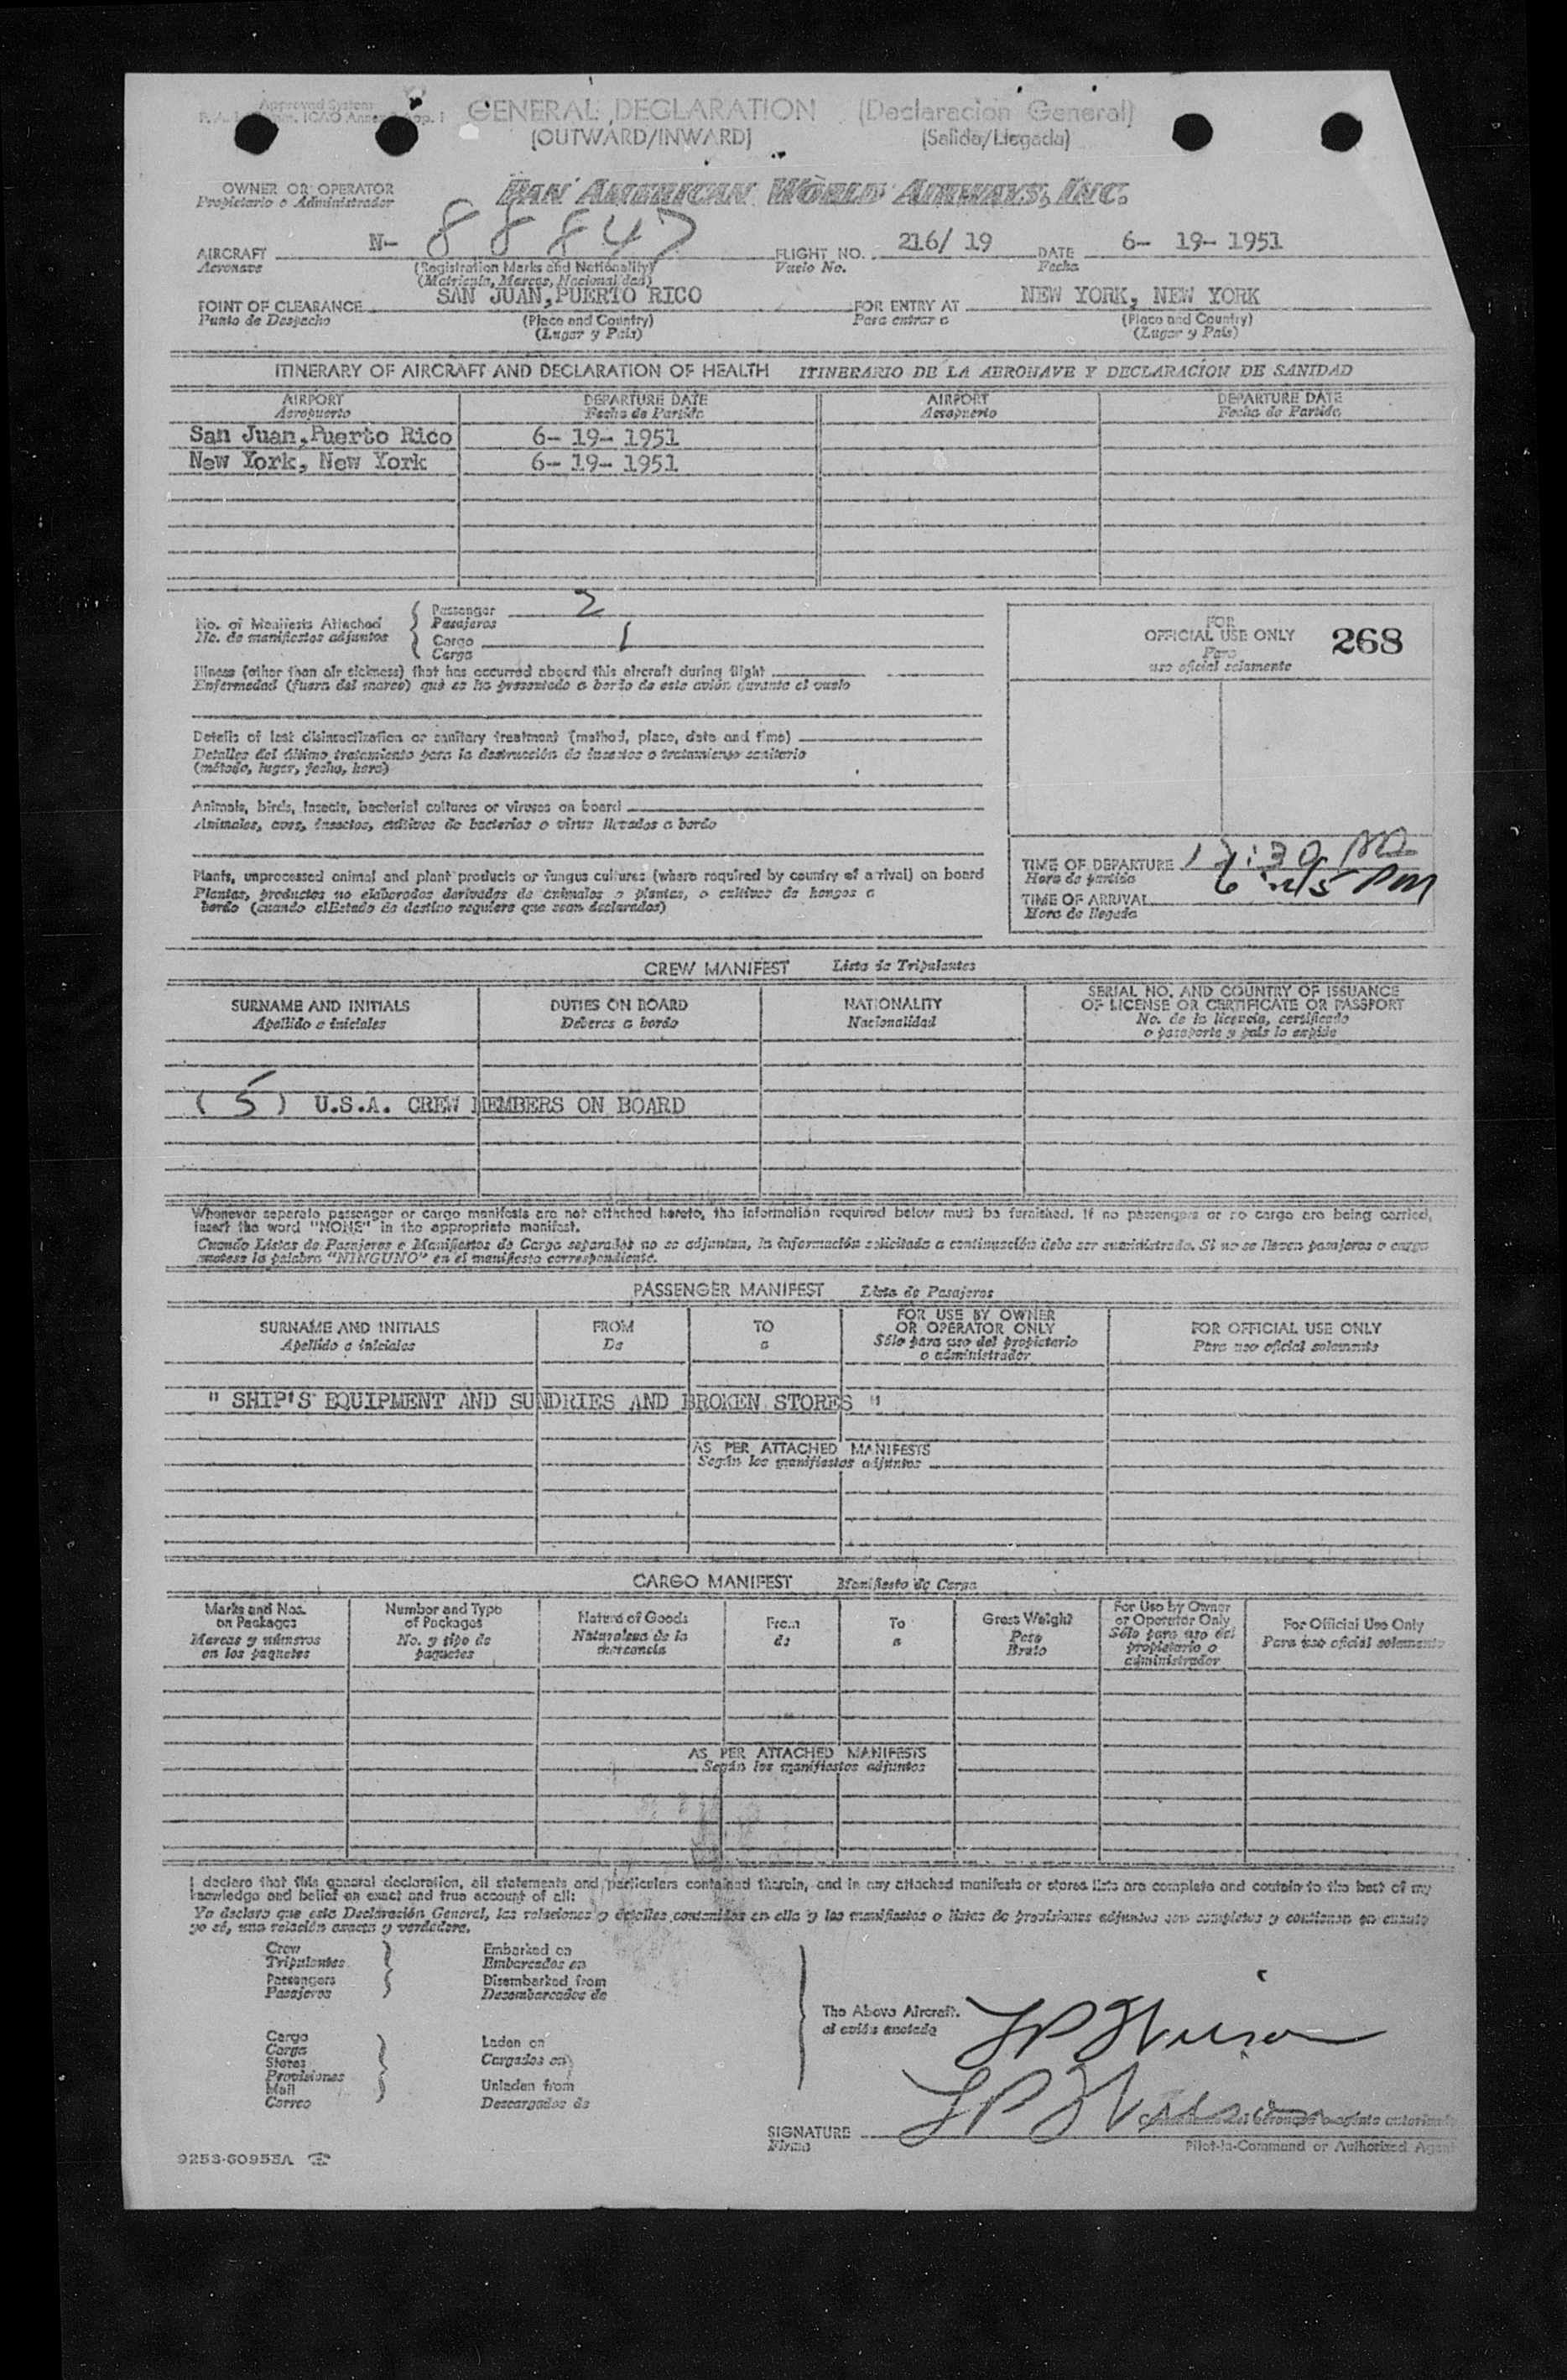 Approved System
GENERAL DECLARATION (Declaracion General)
(OUTWARD/INWARD) (Salida/Llegada)
OWNER OR OPERATOR
Propietario o Administrador
PAN AMERICAN WORLD AIRWAYS, INC.
AIRCRAFT N- 88847 FLIGHT NO. 216/ 19 DATE 6- 19- 1951
Aeronave (Registration Marks and Nationality) Vuelo No. Fecha
(Matricula, Marcas, Nacionalidad)
POINT OF CLEARANCE SAN JUAN, PUERTO RICO FOR ENTRY AT NEW YORK, NEW YORK
Punto de Despacho (Place and Country) Para entrar a (Place and Country)
(Lugar y País) (Lugar y País)
ITINERARY OF AIRCRAFT AND DECLARATION OF HEALTH ITINERARIO DE LA AERONAVE Y DECLARACION DE SANIDAD
AIRPORT DEPARTURE DATE AIRPORT DEPARTURE DATE
Aeropuerto Fecha de Partida Aeropuerto Fecha de Partida
San Juan, Puerto Rico 6- 19- 1951
New York, New York 6- 19- 1951
No. of Manifests Attached Passenger 2
No. de manifiestos adjuntos Pasajeros
Cargo 1
Carga
FOR
OFFICIAL USE ONLY 268
Para
uso oficial solamente
Illness (other than air sickness) that has occurred aboard this aircraft during flight
Enfermedad (fuera del mareo) que se ha presentado a bordo de este avión durante el vuelo
Details of last disinsectization or sanitary treatment (method, place, date and time)
Detalles del último tratamiento para la destrucción de insectos o tratamiento sanitario
(método, lugar, fecha, hora)
Animals, birds, insects, bacterial cultures or viruses on board
Animales, aves, insectos, cultivos de bacterias o virus llevados a bordo
Plants, unprocessed animal and plant products or fungus cultures (where required by country of arrival) on board
Plantas, productos no elaborados derivados de animales o plantas, o cultivos de hongos a
bordo (cuando el Estado de destino requiera que sean declarados)
TIME OF DEPARTURE
Hora de partida
TIME OF ARRIVAL PM
Hora de llegada
CREW MANIFEST Lista de Tripulantes
SURNAME AND INITIALS DUTIES ON BOARD NATIONALITY SERIAL NO. AND COUNTRY OF ISSUANCE
OF LICENSE OR CERTIFICATE OR PASSPORT
Apellido e iniciales Deberes a bordo Nacionalidad No. de la licencia, certificado
o pasaporte y país lo expide
( 5 ) U.S.A. CREW MEMBERS ON BOARD
Whenever separate passenger or cargo manifests are not attached hereto, the information required below must be furnished. If no passengers or no cargo are being carried,
insert the word "NONE" in the appropriate manifest.
Cuando Listas de Pasajeros o Manifiestos de Carga separados no se adjuntan, la información solicitada a continuación debe ser suministrada. Si no se llevan pasajeros o carga
anotese la palabra "NINGUNO" en el manifiesto correspondiente.
PASSENGER MANIFEST Lista de Pasajeros
SURNAME AND INITIALS FROM TO FOR USE BY OWNER
OR OPERATOR ONLY FOR OFFICIAL USE ONLY
Apellido e iniciales De a Sólo para uso del propietario
o administrador Para uso oficial solamente
" SHIP'S EQUIPMENT AND SUNDRIES AND BROKEN STORES "
AS PER ATTACHED MANIFESTS
Según los manifiestos adjuntos
CARGO MANIFEST Manifiesto de Carga
Marks and Nos.
on Packages
Marcas y números
en los paquetes
Number and Type
of Packages
No. y tipo de
paquetes
Nature of Goods
Naturaleza de la
mercancia
From
de
To
a
Gross Weight
Peso
Bruto
For Use by Owner
or Operator Only
Sólo para uso del
propietario o
administrador
For Official Use Only
Para uso oficial solamente
AS PER ATTACHED MANIFESTS
Según los manifiestos adjuntos
I declare that this general declaration, all statements and particulars contained therein, and in any attached manifests or stores lists are complete and contain to the best of my
knowledge and belief an exact and true account of all:
Yo declaro que esta Declaración General, las relaciones y detalles contenidos en ella y los manifiestos o listas de provisiones adjuntos son completos y contienen en cuanto
yo sé, una relación exacta y verdadera.
Crew
Tripulantes
Passengers
Pasajeros
Embarked on
Embarcados en
Disembarked from
Desembarcados de
Cargo
Carga
Stores
Provisiones
Mail
Correo
Laden on
Cargados en
Unladen from
Descargados de
The Above Aircraft.
el avión anotado
SIGNATURE
Firma
Pilot-in-Command or Authorized Agent
9253-60953A